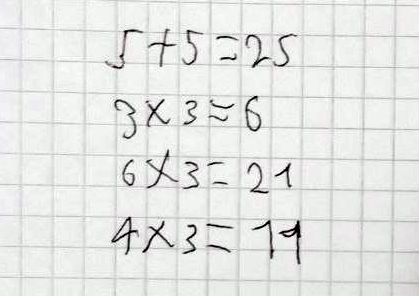 5+5=25
3×3=6
6×3=21
4×3=11